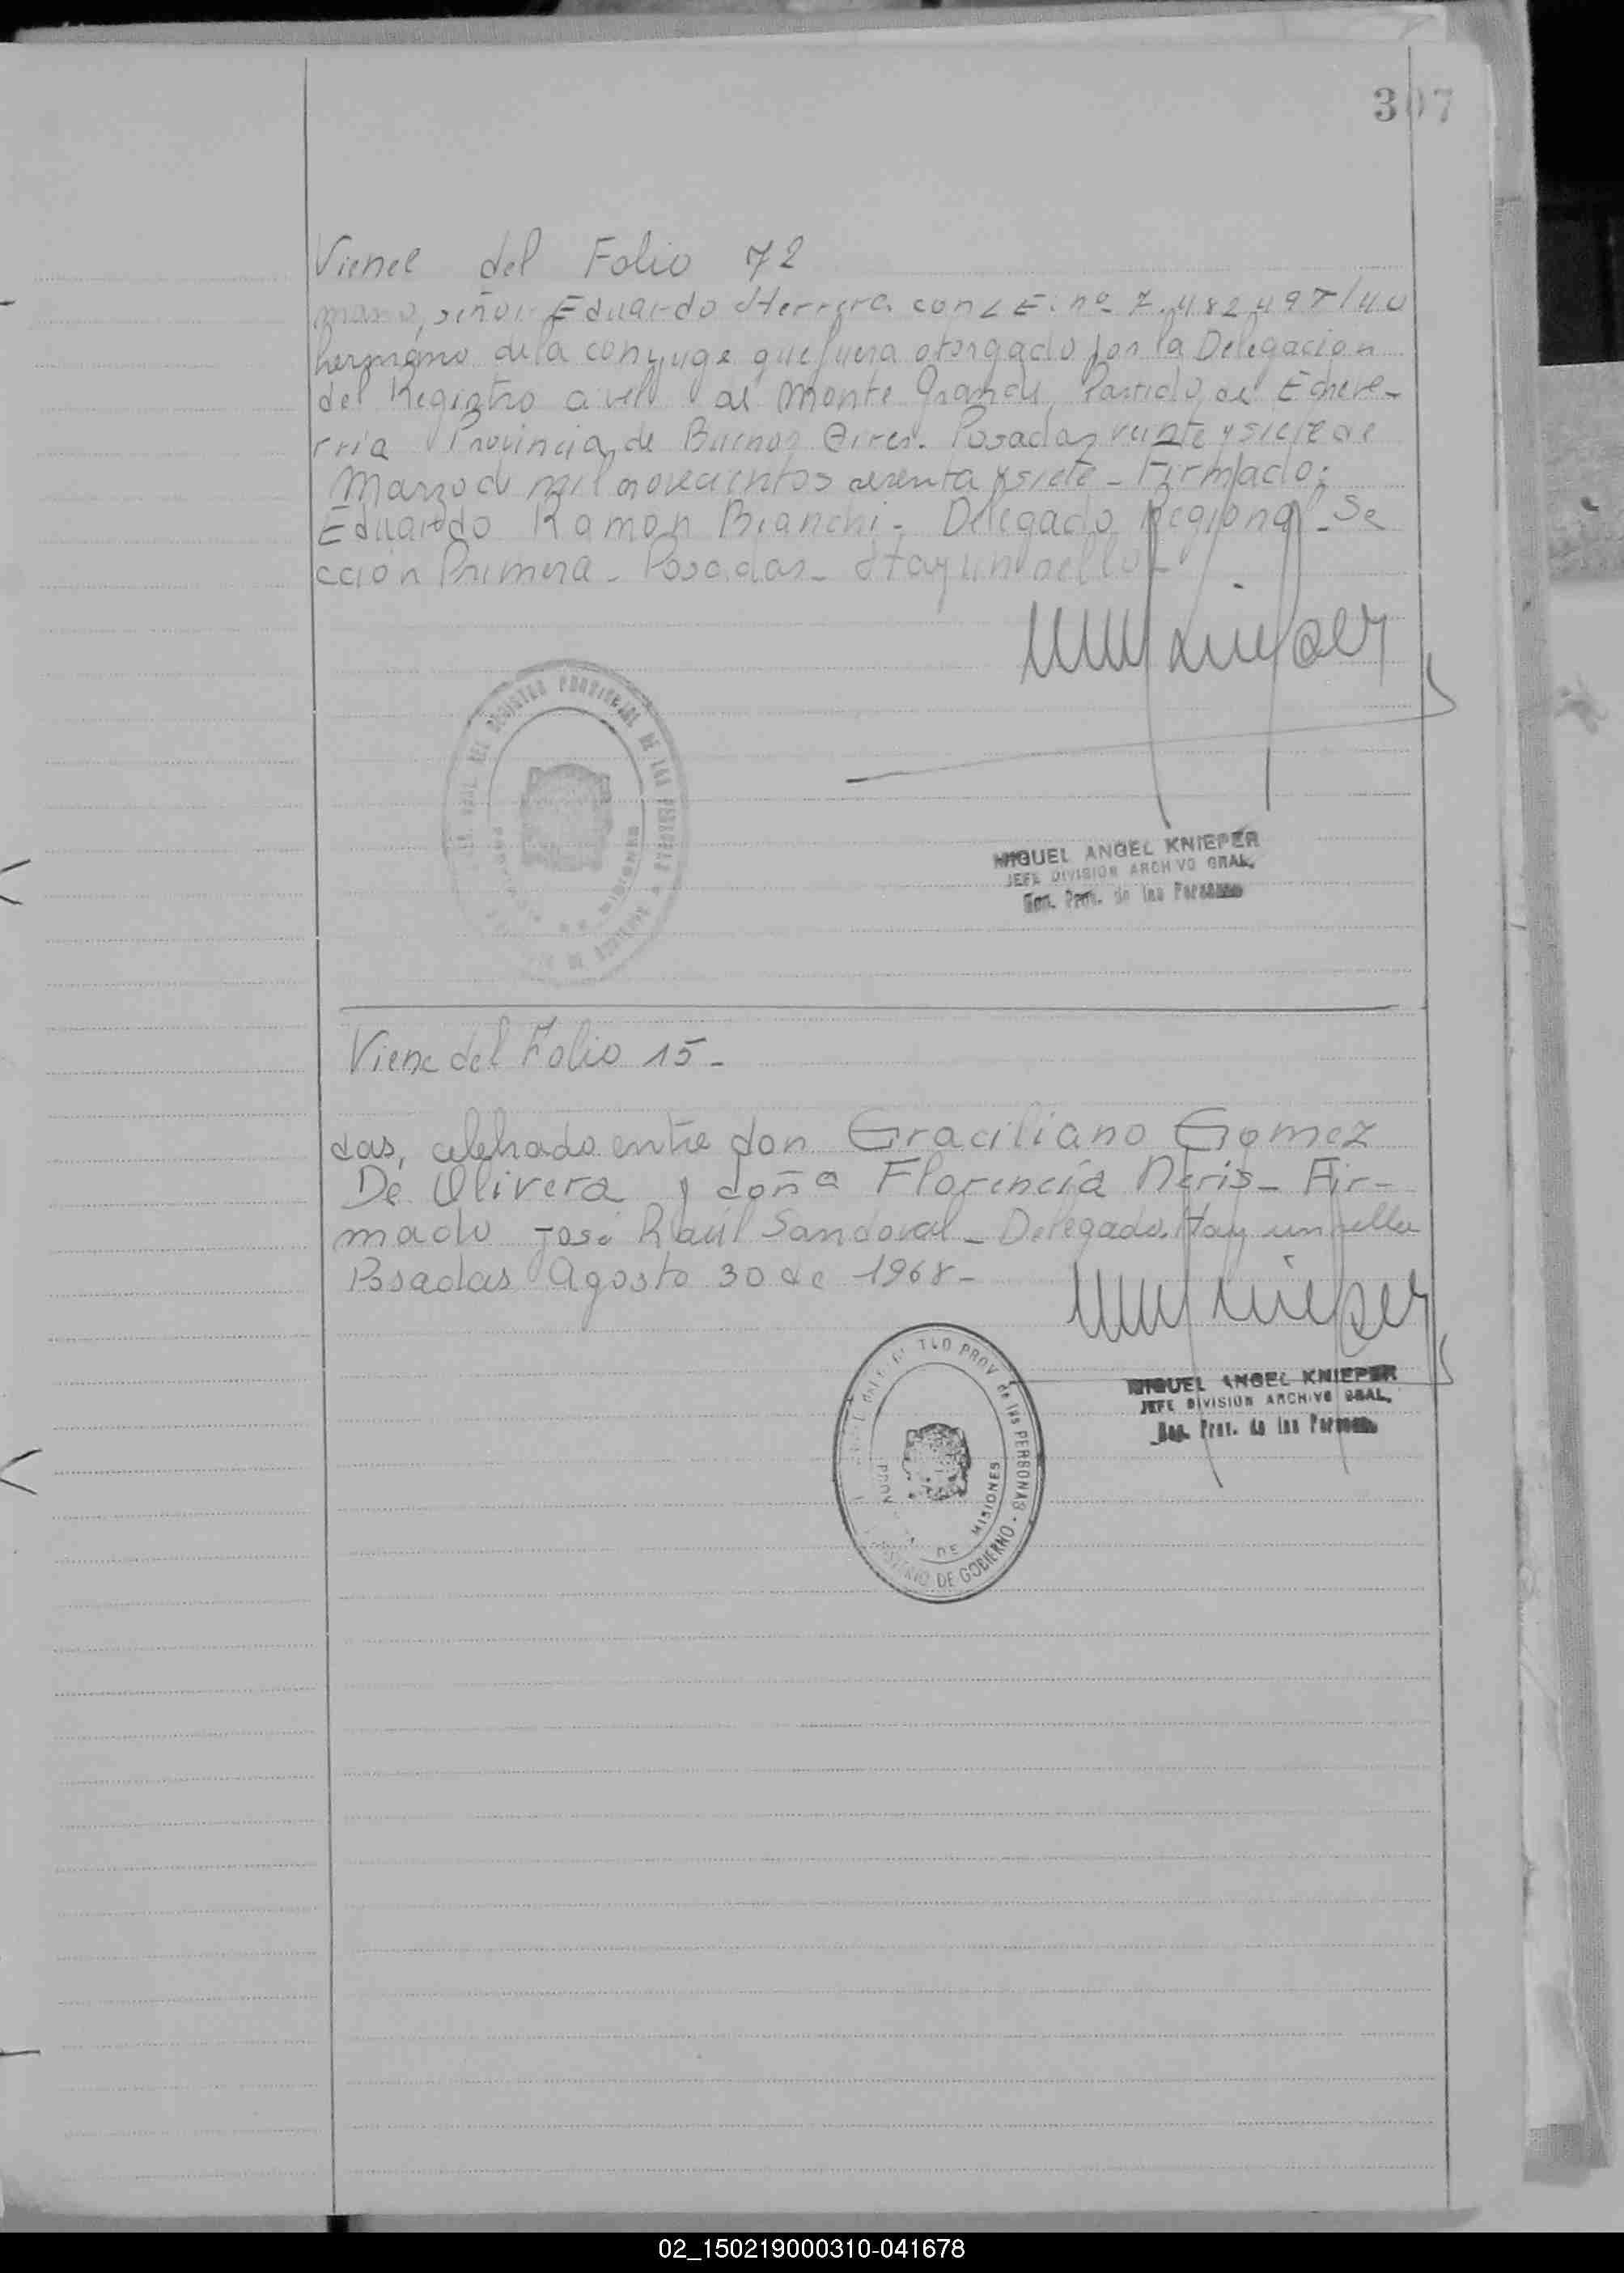 307
Vienee del Folio 72
mano, señor Eduardo Herrera con L E. nº 7.482.497/40
hermano de la conyuge que fuera otorgado por la Delegación
del Registro Civil de Monte Grande, Partido de Echeve-
rria Provincia de Buenos Aires. Posadas veinte y siete de
Marzo de mil novecientos sesenta y siete - Firmado:
Eduardo Ramon Bianchi - Delegado Regional - Se
cción Primera - Posadas - Hay un sello -
REGISTRO PROVINCIAL DE LAS PERSONAS
MISIONES
MIGUEL ANGEL KNIEPER
JEFE DIVISION ARCHIVO GRAL.
Prov. de las Personas
Viene del Folio 15 -
das, celebrado entre don Graciliano Gomez
De Olivera y doña Florencia Neris - Fir-
mado José Raúl Sandoval - Delegado. Hay un sello
Posadas Agosto 30 de 1968 -
PROV. de las PERSONAS - MINISTERIO DE GOBIERNO
PROV DE MISIONES
MIGUEL ANGEL KNIEPER
JEFE DIVISION ARCHIVO GRAL.
Prov. de las Personas
02_150219000310-041678